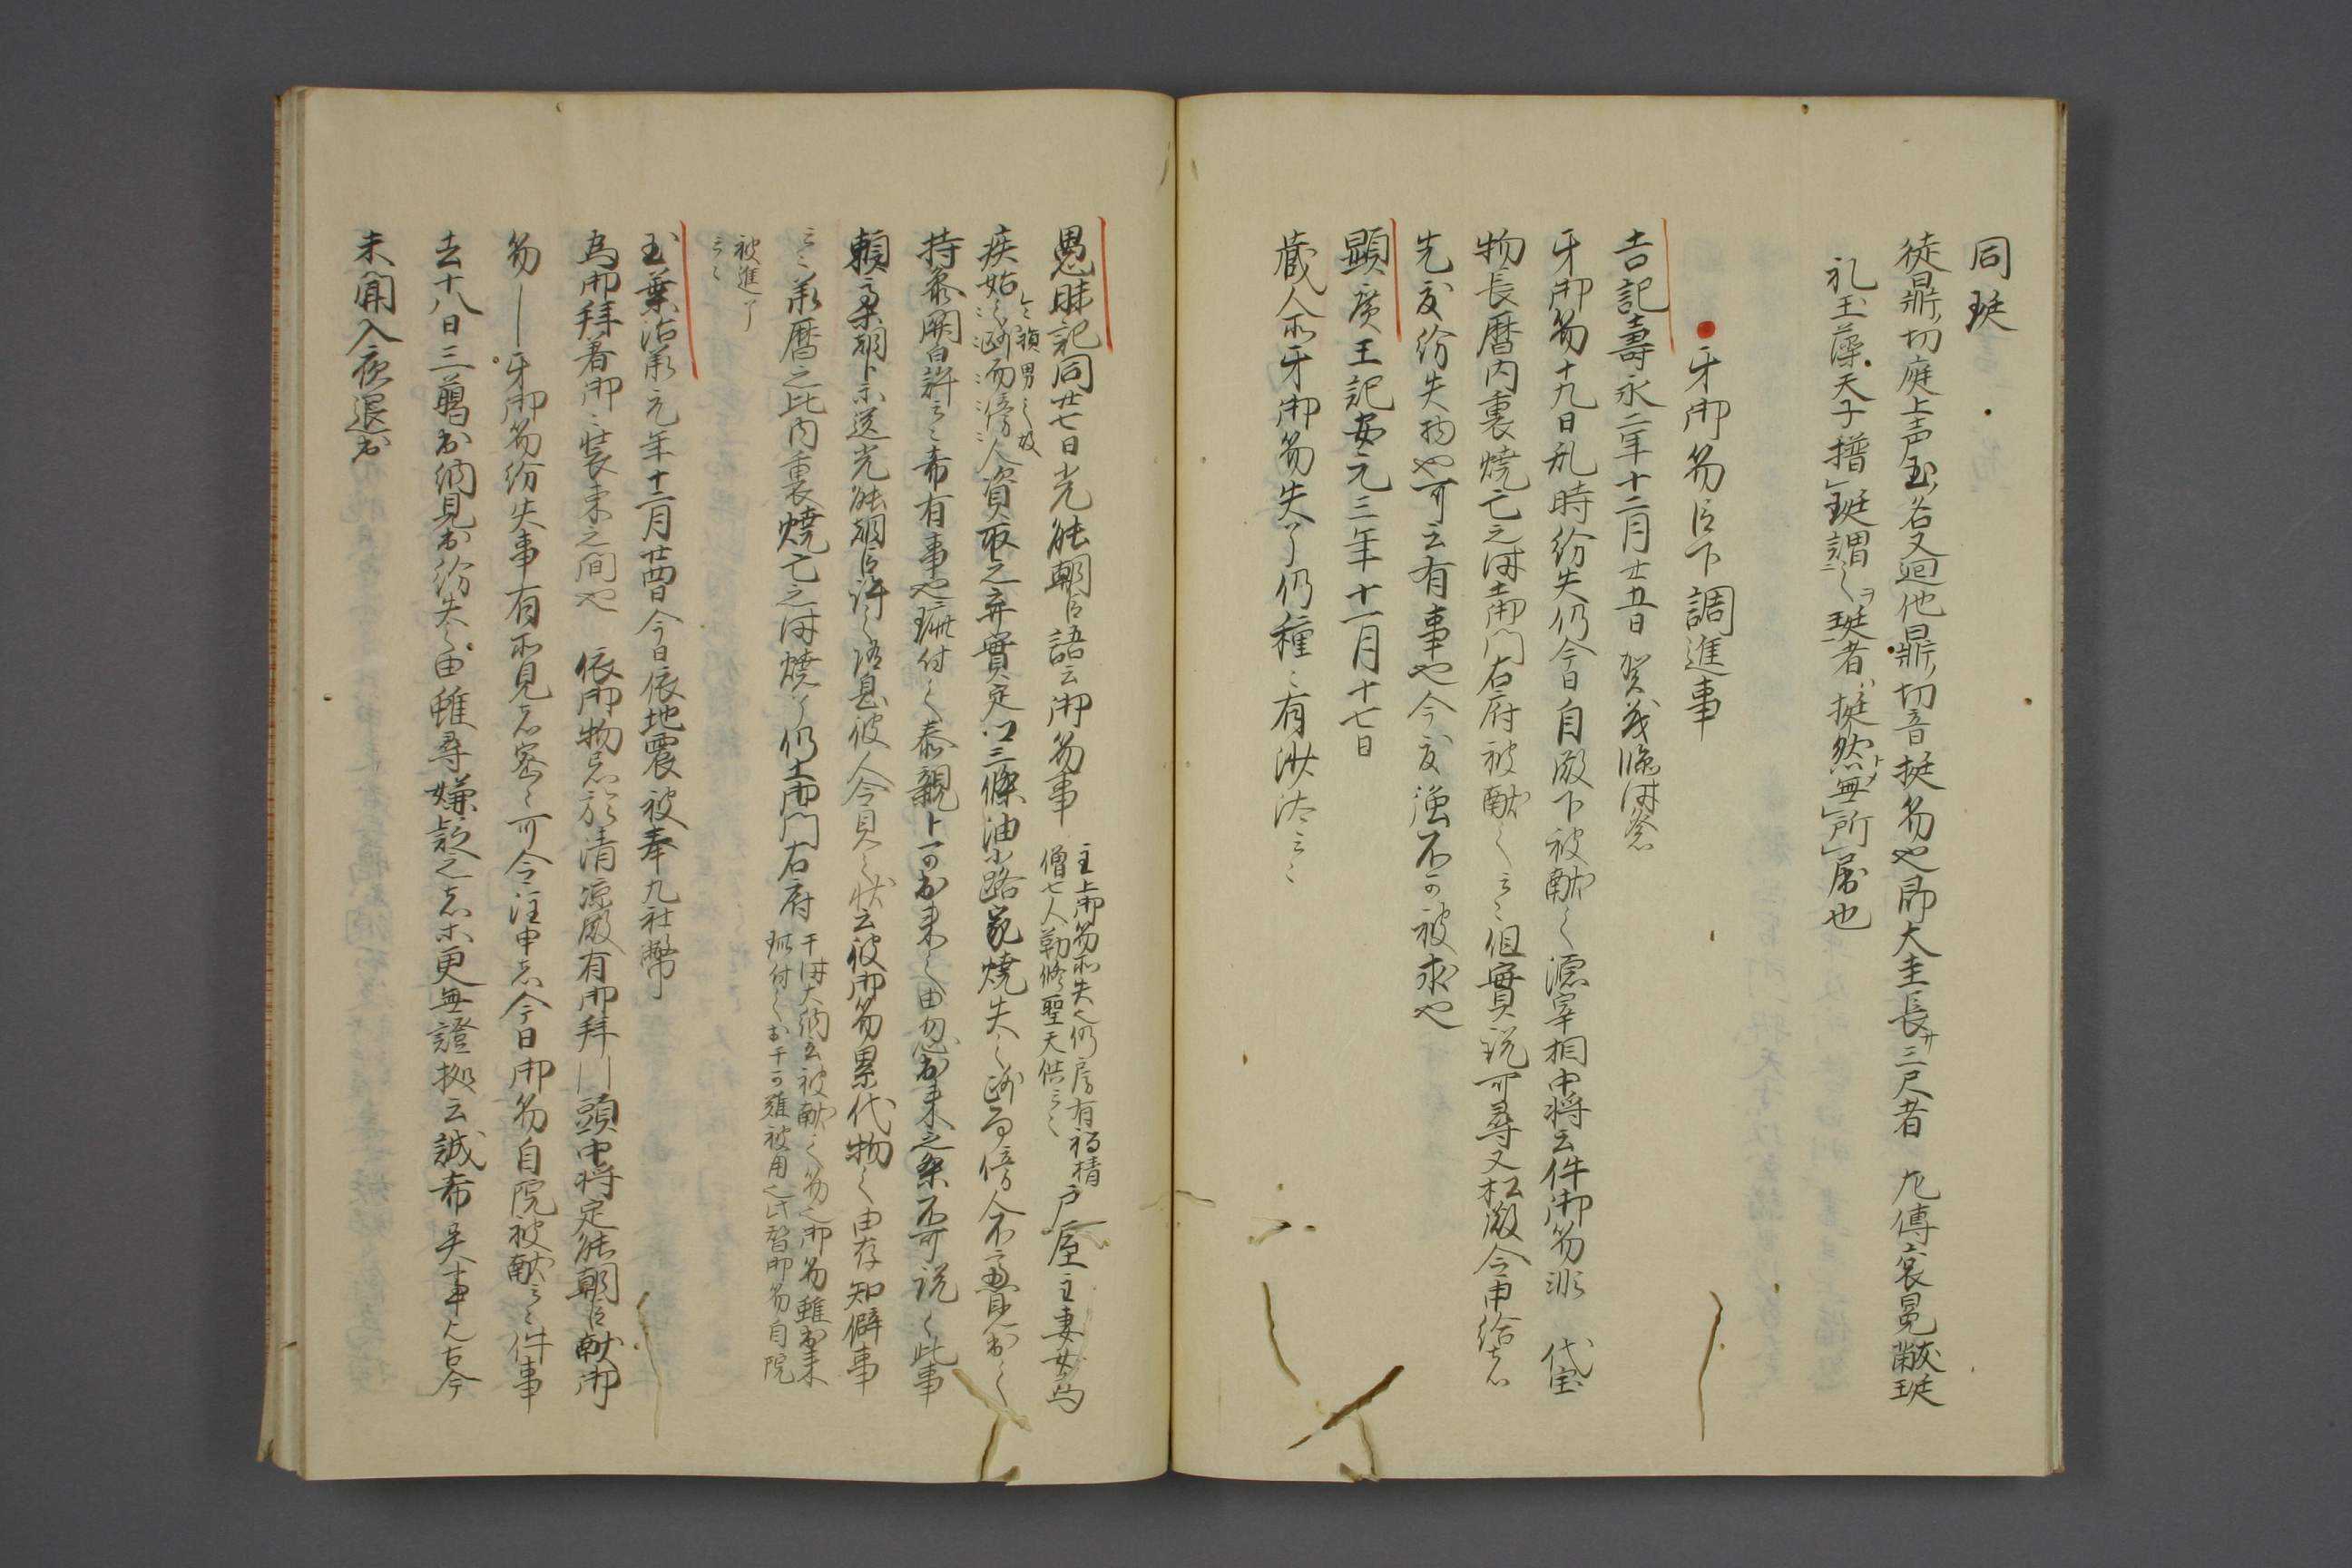 同珽
徒鼎切庭上声玉名又廻他鼎切音挺笏也即大圭長廾三尺者　九傳袞冕黻珽
礼玉藻天子搢珽謂之珽者挺然無所屈也
牙御笏臣下調進事
吉記壽永二年十二月廿五日賀茂臨時祭
牙御笏十九日乱時紛失仍今日自殿下被献之源宰相中将云件御笏非　代宝
物長暦内裏焼亡之時土御門右府被献之云々但實説可尋又松殿令申給云
先度紛失物也可云有事也今度強不可被求也
顕廣王記安元三年十一月十七日
蔵人所牙御笏失了仍種々有沙汰云々
愚昧記同廿七日光能朝臣語云御笏事　主上御笏所失也仍房有福精
僧七人勤修聖天供云々　戸屋主妻女為
疾始之所而傍人資取之弃實定口三條油小路家焼失之所而傍人不意見出之
持参関白許云々希有事也珎付之泰親卜可出来之由忽出来之条不可説之此事
頼高朝卜示送光能朝臣許之消息彼人令見之状云彼御笏累代物之由存知僻事
云々承暦之比内裏焼亡之時焼了仍土御門右府　于時大納言被献之笏也御笏雖出来
珎付之出于可雖被用之此暫御笏自院
被進了
云々
玉葉治承元年十二月廿四日今日依地震被奉九社幣
為御拝着御々装束之間也　依御物忌於清凉殿有御拝｜頭中将定能朝臣献御
笏｜牙御笏紛失事有所見者密々可令注申者今日御笏自院被献云々件事
去十八日三﨟出納見出紛失之由雖尋嫌疑之者未更無證拠云誠希異事也古今
未聞入夜退出